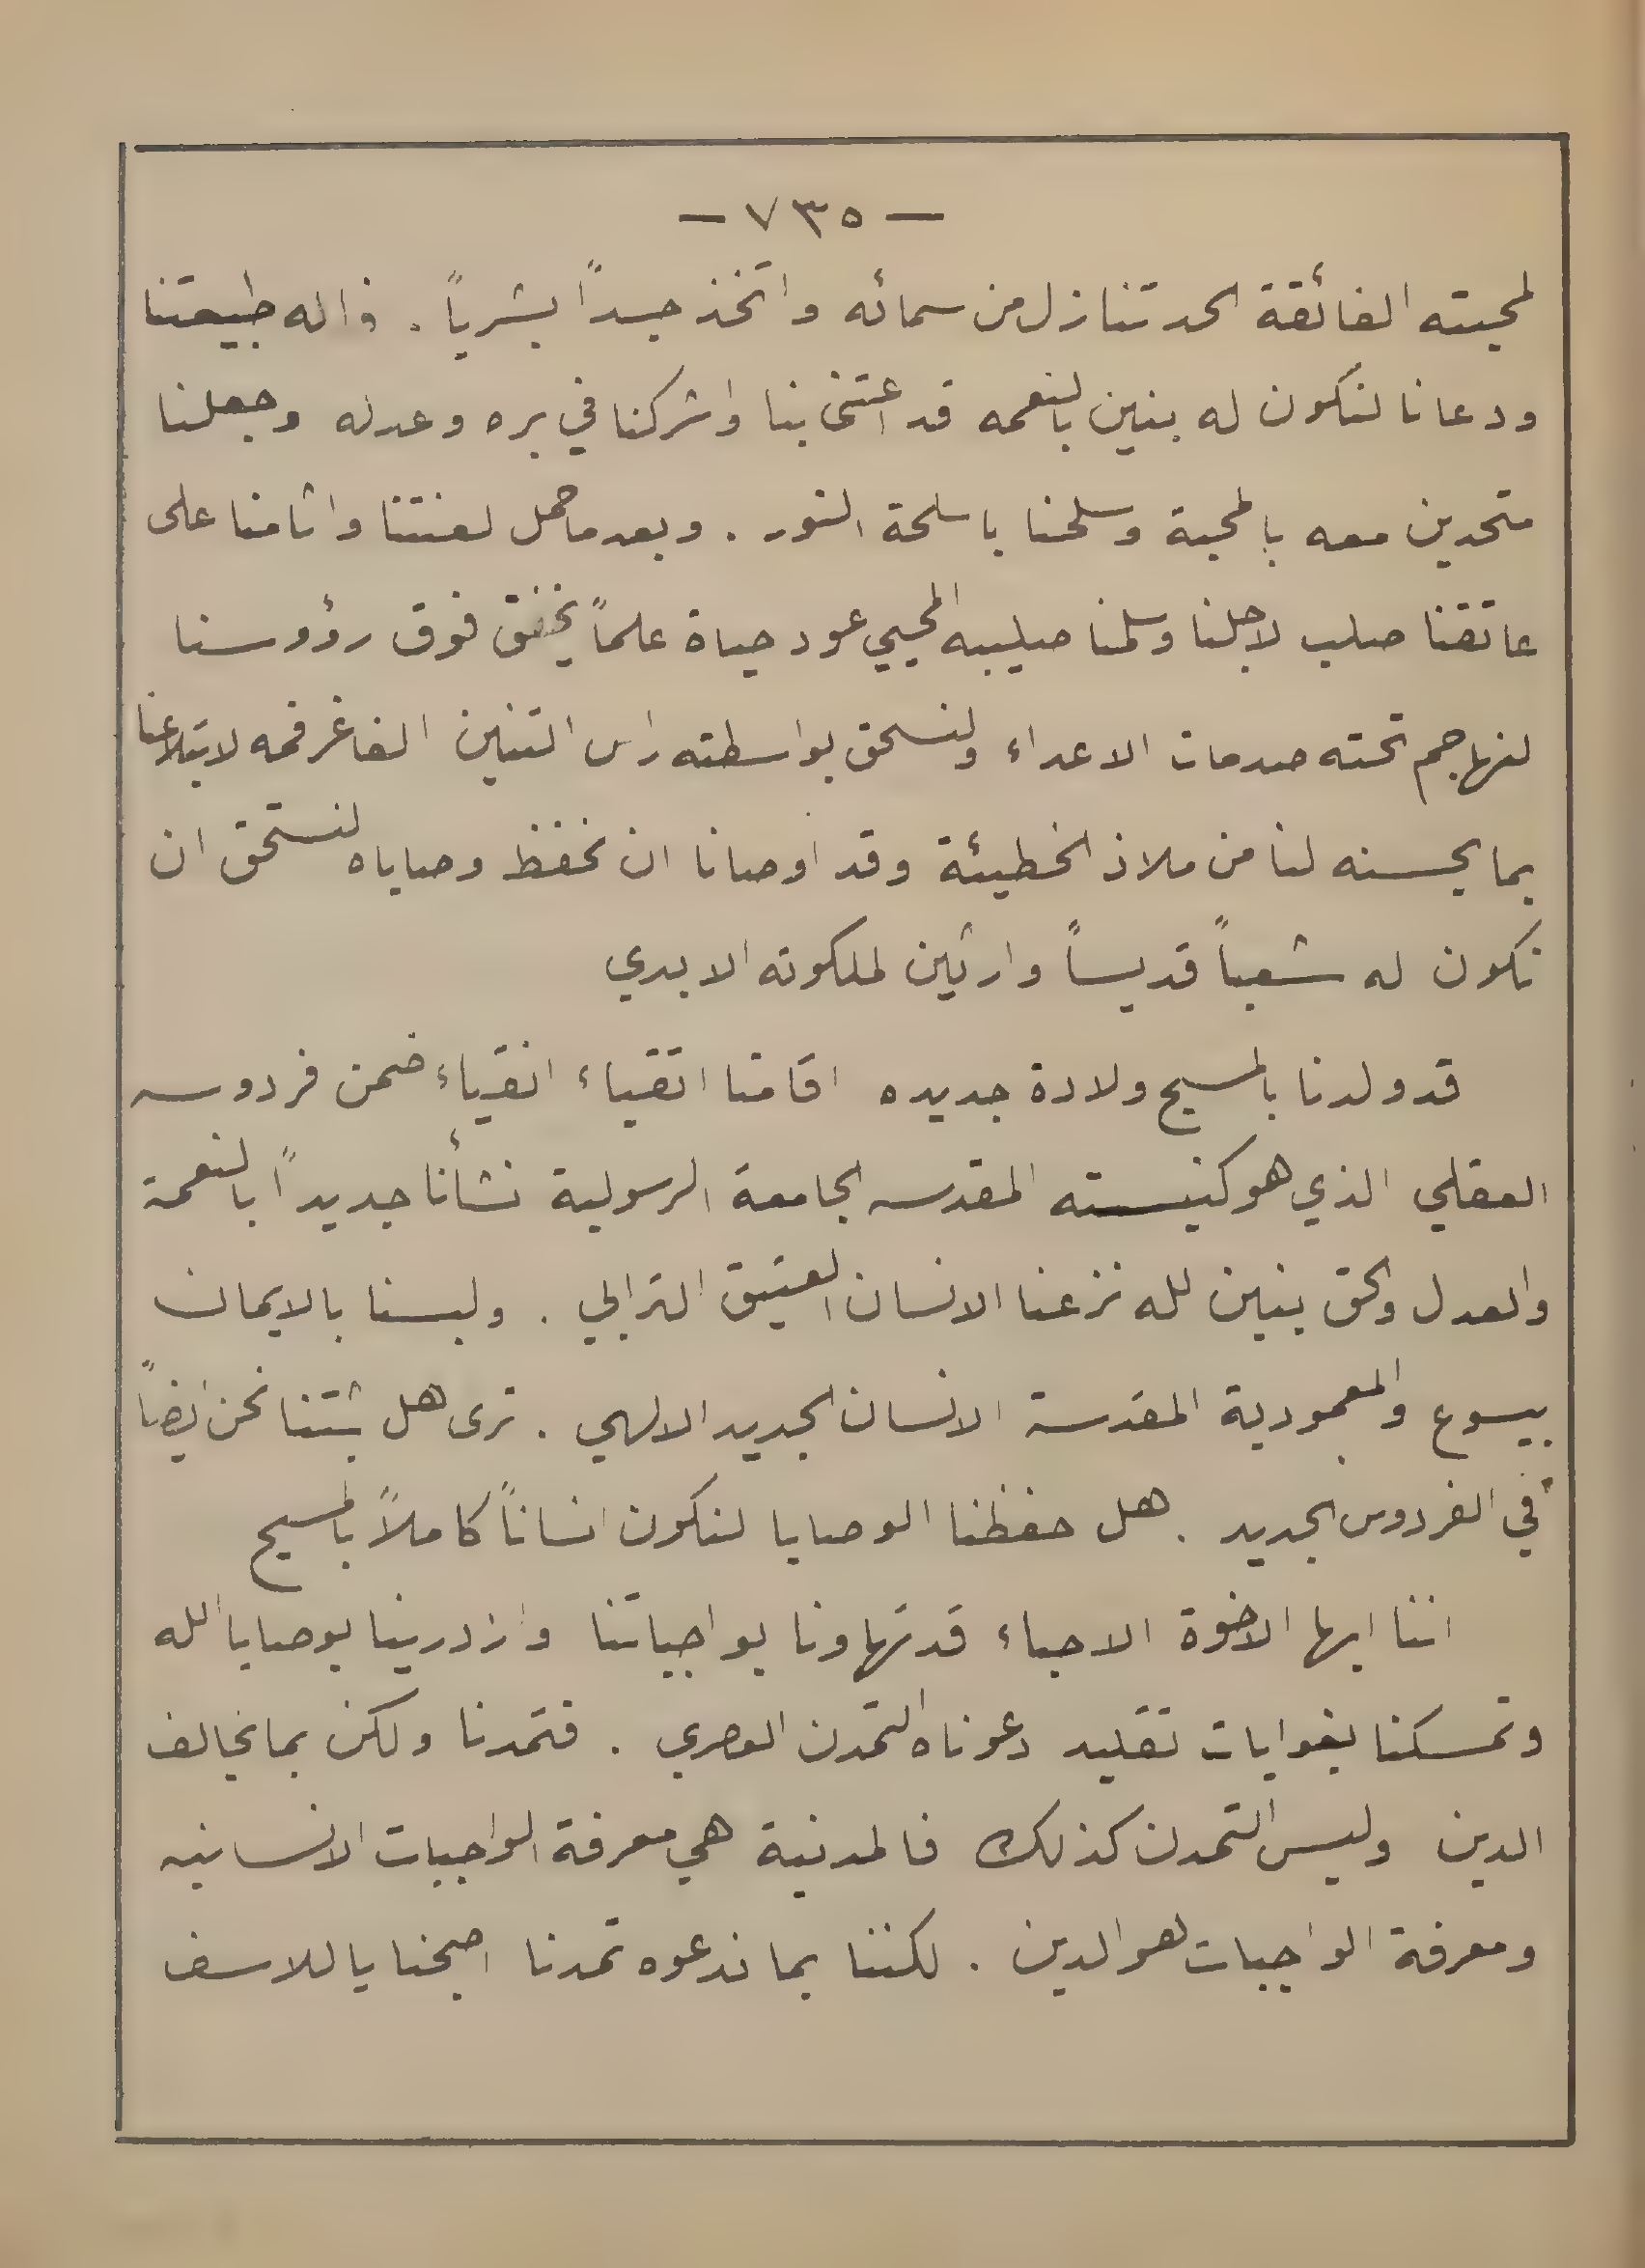 — ٧٣٥ —
لمحبته الفائقة الحد تنازل من سمائه واتخذ جسداً بشرياً . فاله طبيعتنا
ودعانا لنكون له بنين بالنعمه قد اعتنى بنا واشركنا في بره وعدله وجعلنا
متحدين معه بالمحبة وسلحنا باسلحة النور . وبعد ما حمل لعنتنا واثامنا على
عاتقنا صلب لاجلنا وسلمنا صليبه المحيي عود حياة علماً يخفق فوق رؤوسنا
لنهاجم تحته صدمات الاعداء ولنسحق بواسطته راس التنين الفاغر فمه لابتلاعنا
بما يحسنه لنا من ملاذ الخطيئة وقد اوصانا ان نحفظ وصاياه لنستحق ان
نكون له شعباً قديساً وارثين لملكوته الابدي
قد ولدنا بالمسيح ولادة جديده اقامنا اتقياء انقياء ضمن فردوسه
العقلي الذي هو كنيسته المقدسه الجامعة الرسولية نشأنا جديداً بالنعمة
والعدل والحق بنين لله نزعنا الانسان العتيق الترابي . ولبسنا بالايمان
بيسوع والمعمودية المقدسة الانسان الجديد الالهي . ترى هل ثبتنا نحن ايضاً
في الفردوس الجديد . هل حفظنا الوصايا لنكون انساناً كاملاً بالمسيح
اننا ايها الاخوة الاحباء قد تهاونا بواجباتنا وازدرينا بوصايا الله
وتمسكنا بغوايات تقليد دعوناه التمدن العصري . فتمدنا ولكن بما يخالف
الدين وليس التمدن كذلك فالمدنية هي معرفة الواجبات الانسانيه
ومعرفة الواجبات لهو الدين . لكننا بما ندعوه تمدنا اصبحنا ياللاسف